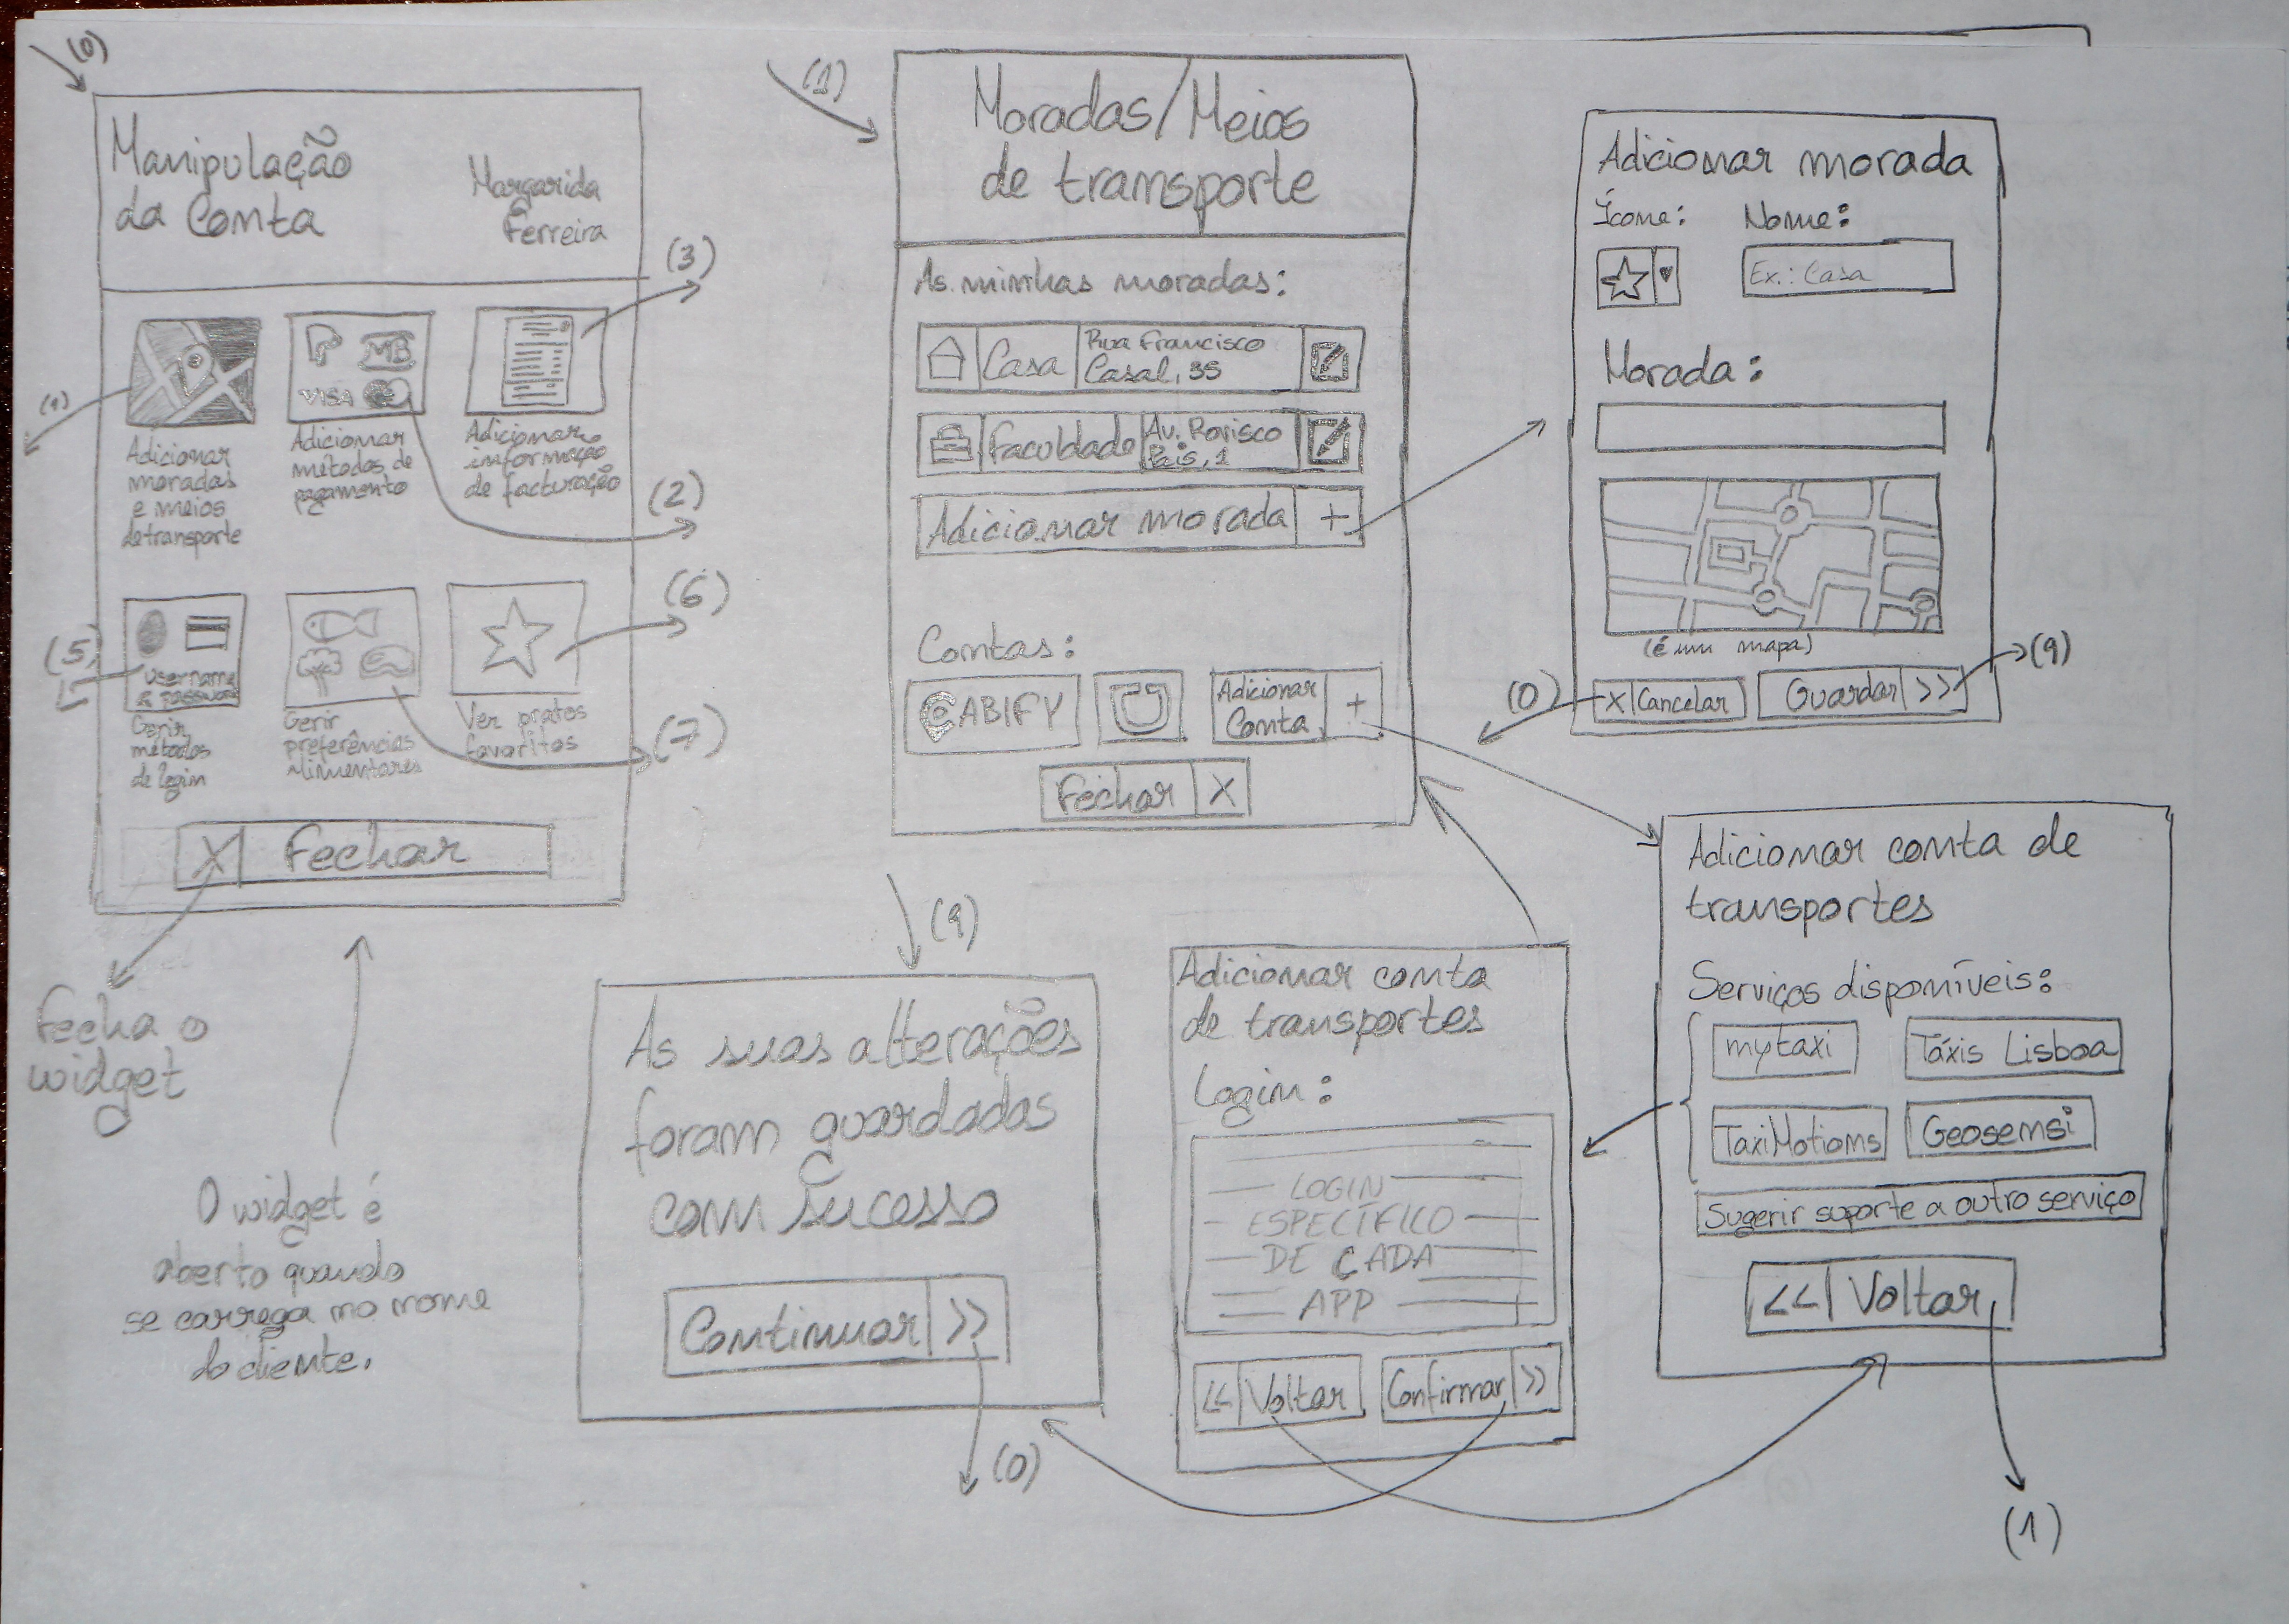 (0)
Manipulação
da Conta
Margarida
Ferreira
(3)
MB
VISA
(1)
Adicionar
moradas
e meios
de transporte
Adicionar
métodos de
pagamento
Adicionar
informação
de facturação
(2)
(5)
Username
& password
Gerir
métodos
de login
Gerir
preferências
alimentares
Ver pratos
favoritos
(6)
(7)
X Fechar
Fecha o
widget
O widget é
aberto quando
se carrega no nome
do cliente.
(1)
Moradas/Meios
de transporte
As minhas moradas:
Casa
Rua Francisco
Casal, 35
Faculdade
Av. Rovisco
Pais, 1
Adicionar morada +
Contas:
CABIFY
Adicionar
Conta +
Fechar X
Adicionar morada
Ícone: Nome:
Ex.: Casa
Morada:
(é um mapa)
X Cancelar
Guardar >>
(0)
(9)
(9)
As suas alterações
foram guardadas
com sucesso
Continuar >>
(0)
Adicionar conta
de transportes
Login:
LOGIN
ESPECÍFICO
DE CADA
APP
<< Voltar
Confirmar >>
Adicionar conta de
transportes
Serviços disponíveis:
mytaxi
Táxis Lisboa
TaxiMotions
Geosensi
Sugerir suporte a outro serviço
<< Voltar
(1)